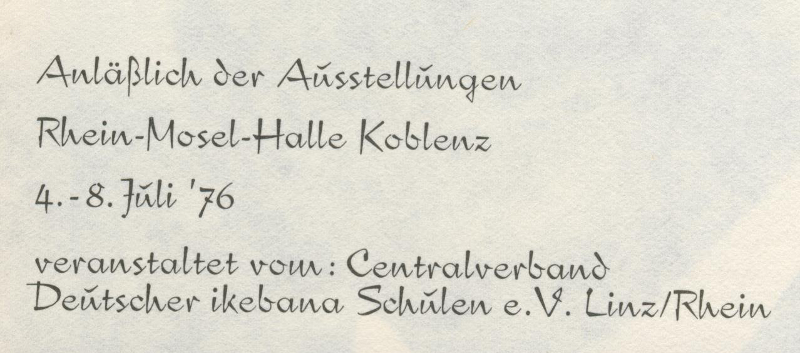 Anläßlich der Ausstellungen
Rhein-Mosel-Halle Koblenz
4.-8. Juli '76
veranstaltet vom: Centralverband
Deutscher ikebana Schulen e.V. Linz/Rhein